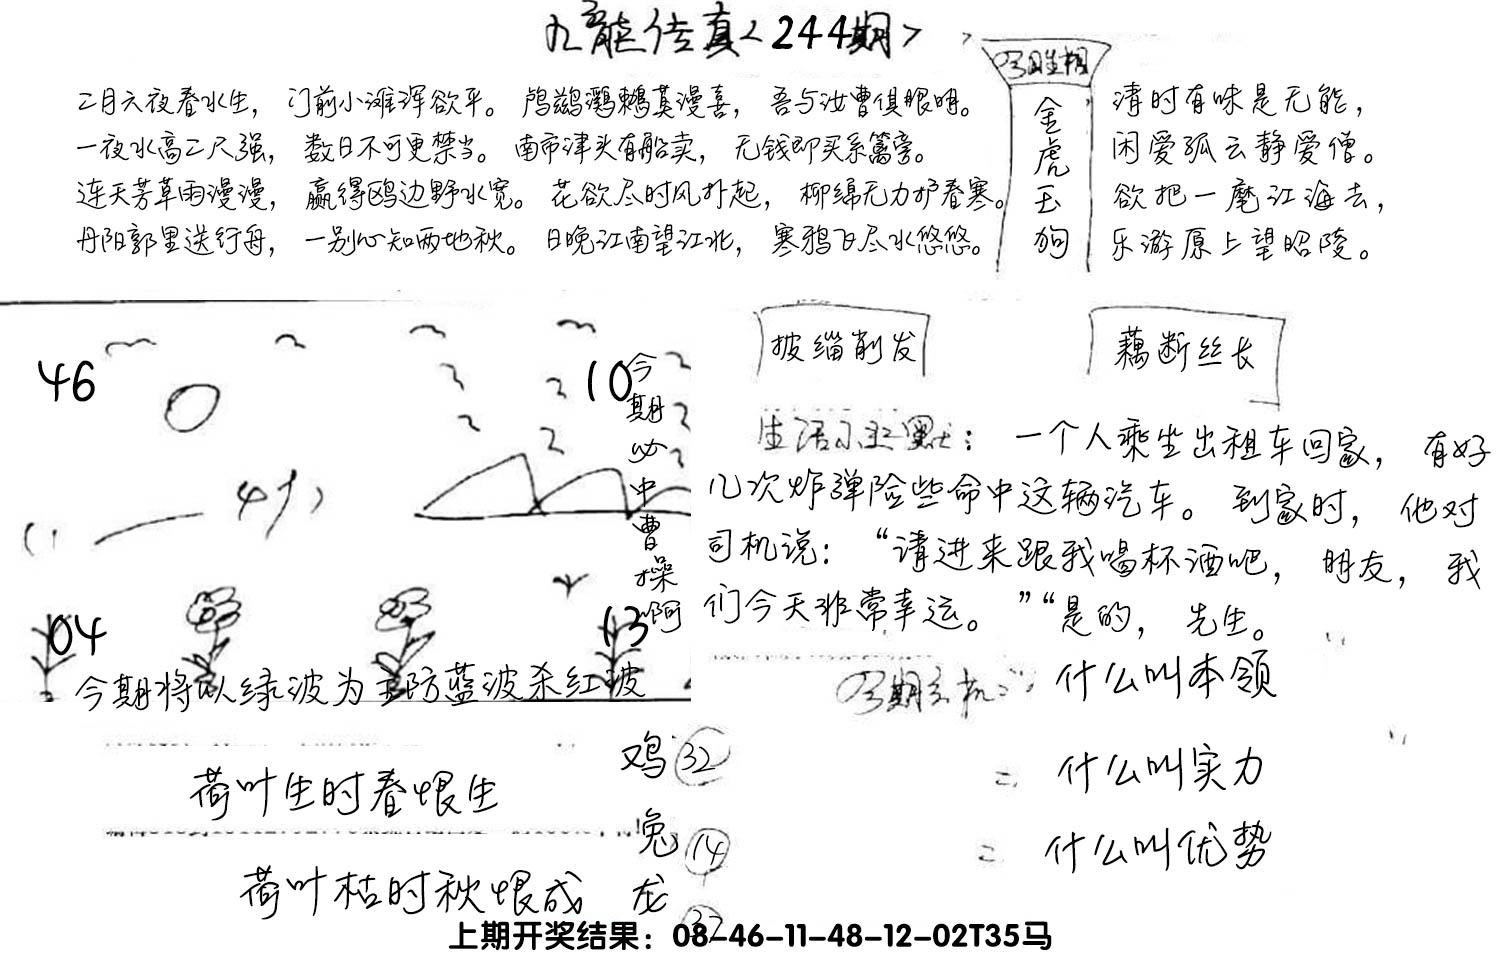 九龙传真<244期>
二月六夜春水生，门前小滩浑欲平。鸬鹚鸂鶒莫漫喜，吾与汝曹俱眼明。
一夜水高二尺强，数日不可更禁当。南市津头有船卖，无钱即买系篱旁。
连天芳草雨漫漫，赢得鸥边野水宽。花欲尽时风扑起，柳绵无力护春寒。
丹阳郭里送行舟，一别心知两地秋。日晚江南望江北，寒鸦飞尽水悠悠。
金虎玉狗
清时有味是无能，
闲爱孤云静爱僧。
欲把一麾江海去，
乐游原上望昭陵。
46
10
今期必中曹操啊
04
13
今期将以绿波为主防蓝波杀红波
披缁削发
藕断丝长
生活小幽默：一个人乘坐出租车回家，有好
几次炸弹险些命中这辆汽车。到家时，他对
司机说：“请进来跟我喝杯酒吧，朋友，我
们今天非常幸运。”“是的，先生。
今期玄机：什么叫本领
二 什么叫实力
二 什么叫优势
荷叶生时春恨生
荷叶枯时秋恨成
鸡 32
兔 14
龙
上期开奖结果：08-46-11-48-12-02T35马